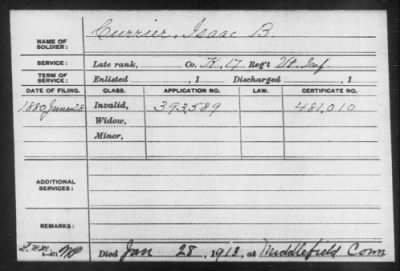 NAME OF SOLDIER: Currier, Isaac B.
SERVICE: Late rank, Co. K, 17 Reg't Vt. Inf
TERM OF SERVICE: Enlisted , 1 Discharged , 1
DATE OF FILING. CLASS. APPLICATION NO. LAW. CERTIFICATE NO.
1880 June 28 Invalid, 393589 481,010
Widow,
Minor,
ADDITIONAL SERVICES:
REMARKS:
Died Jan 28, 1913, at Middlefield Conn